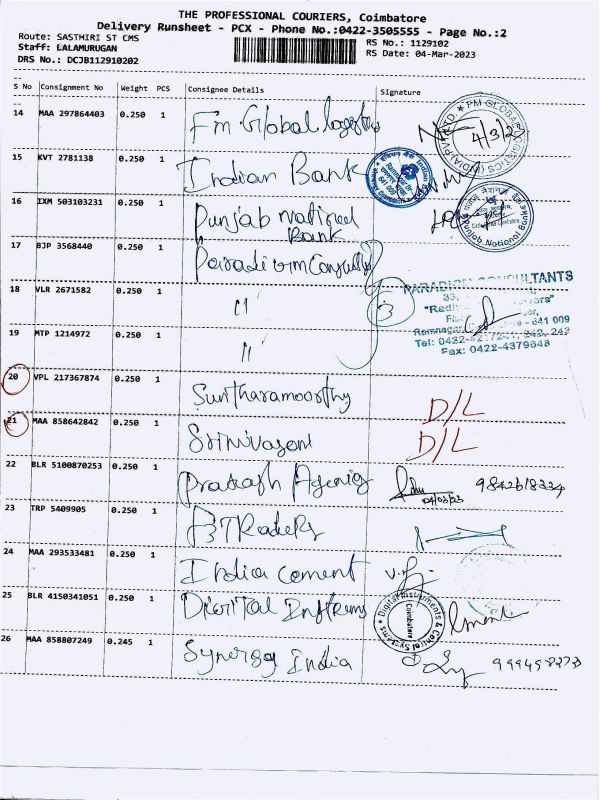 THE PROFESSIONAL COURIERS, Coimbatore
Delivery Runsheet - PCX - Phone No.:0422-3505555 - Page No.:2
Route: SASTHIRI ST CMS
Staff: BALAMURUGAN
DRS No.: DCJB112910202
RS No.: 1129102
RS Date: 04-Mar-2023
S No Consignment No Weight PCS Consignee Details Signature
14 MAA 297864403 0.250 1 Fm Global logistics 4/3/23
15 KVT 2781138 0.250 1 Indian Bank
16 IXM 503103231 0.250 1 Punjab National Bank
17 BJP 3568440 0.250 1 Paradigm Consultg
18 VLR 2671582 0.250 1 " 3
PARADIGM CONSULTANTS
33,
Ramnagar, 641 009
Tel: 0422-4217241, 242, 243
Fax: 0422-4379648
19 MTP 1214972 0.250 1 "
20 VPL 217367874 0.250 1 Suntharamoorthy D/L
21 MAA 858642842 0.250 1 Srinivasan D/L
22 BLR 5100870253 0.250 1 Prakash Agency 04/03/23
23 TRP 5409905 0.250 1 Traders
24 MAA 293533481 0.250 1 India cement
25 BLR 4150341051 0.250 1 Digital Instrums
Digital Instruments & Control Systems
Coimbatore
26 MAA 858807249 0.245 1 Synergy India